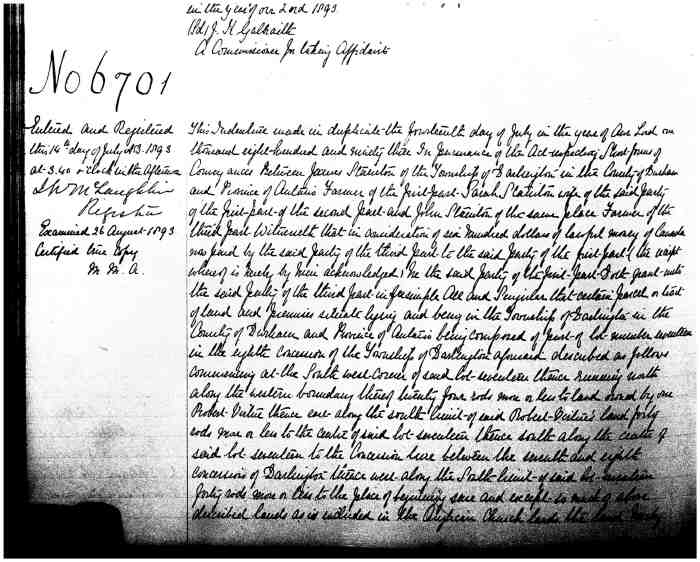 in the year of our Lord 1893
(Sd) J. H. Galbraith
A Commissioner for taking Affidavits
No 6701
Entered and Registered
this 14th day of July AD. 1893
at 3.40 o'clock in the Afternoon
McLaughlin
Registrar
Examined 26 August 1893
Certified true Copy
M. M. A.
This Indenture made in duplicate the fourteenth day of July in the year of Our Lord one
thousand eight hundred and ninety three In Pursuance of the Act respecting Short forms of
Conveyances Between James Stainton of the Township of Darlington in the County of Durham
and Province of Ontario Farmer of the first part Sarah Stainton wife of the said party
of the first part of the second part and John Stainton of the same place Farmer of the
third part Witnesseth that in consideration of six hundred dollars of lawful money of Canada
now paid by the said party of the third part to the said party of the first part (the receipt
whereof is hereby by him acknowledged) he the said party of the first part Doth grant unto
the said party of the third part in fee simple All and Singular that certain parcel or tract
of land and premises situate lying and being in the Township of Darlington in the
County of Durham and Province of Ontario being composed of part of lot number seventeen
in the eighth concession of the Township of Darlington aforesaid described as follows
commencing at the South west corner of said lot seventeen thence running north
along the western boundary thereof twenty four rods more or less to land owned by one
Robert thence east along the south limit of said Robert land forty
rods more or less to the centre of said lot seventeen thence south along the centre of
said lot seventeen to the Concession line between the seventh and eighth
concessions of Darlington thence west along the South limit of said lot seventeen
forty rods more or less to the place of beginning save and except so much of above
described lands as is included in the Anglican Church lands the land